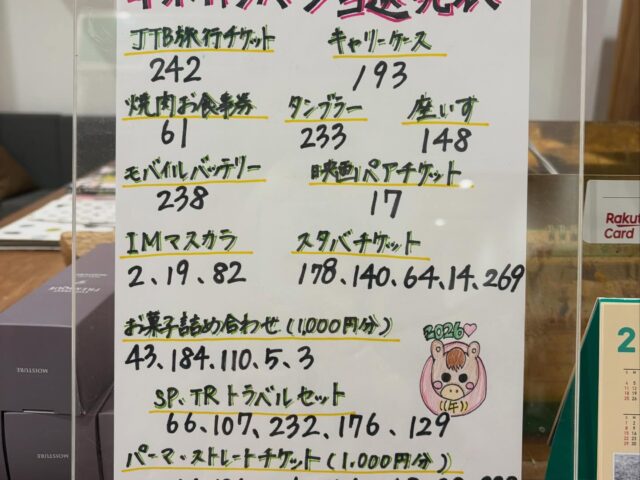 当選発表
JTB旅行チケット
242
キャリーケース
193
焼肉お食事券
61
タンブラー
233
座いす
148
モバイルバッテリー
238
映画ペアチケット
17
IMマスカラ
2、19、82
スタバチケット
178、140、64、14、269
お菓子詰め合わせ(1,000円分)
43、184、110、5、3
2026
SP、TRトラベルセット
66、107、232、176、129
パーマ・ストレートチケット(1,000円分)
MOISTURE
MOISTURE
Rakuten
Card
2